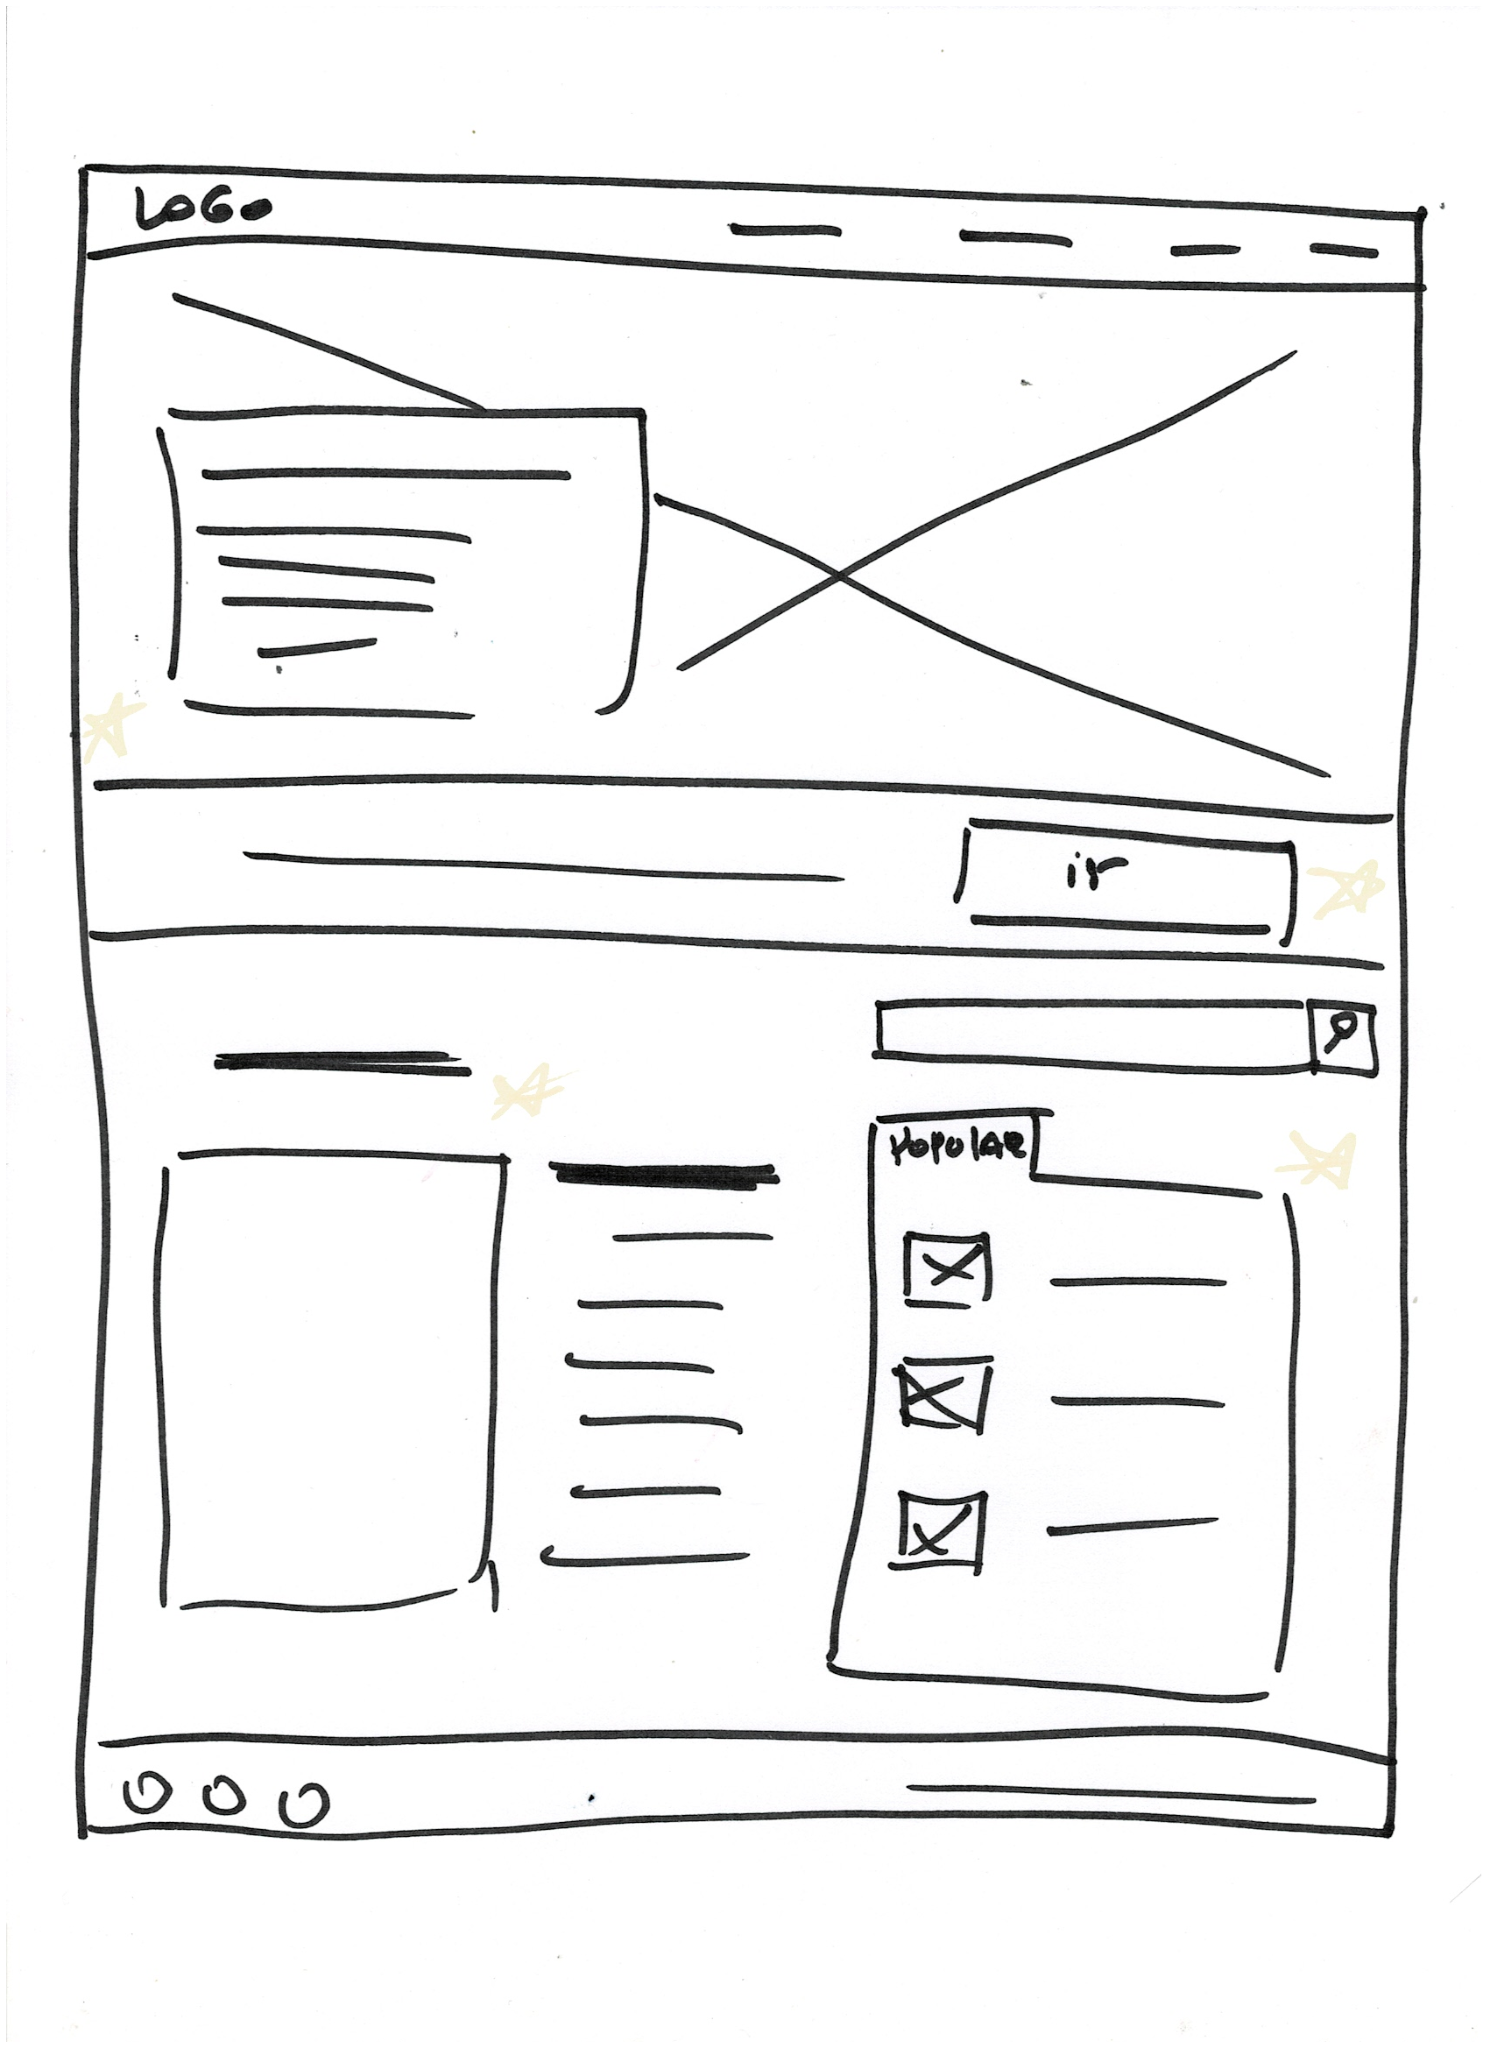 LOGO
ir
POPULAR